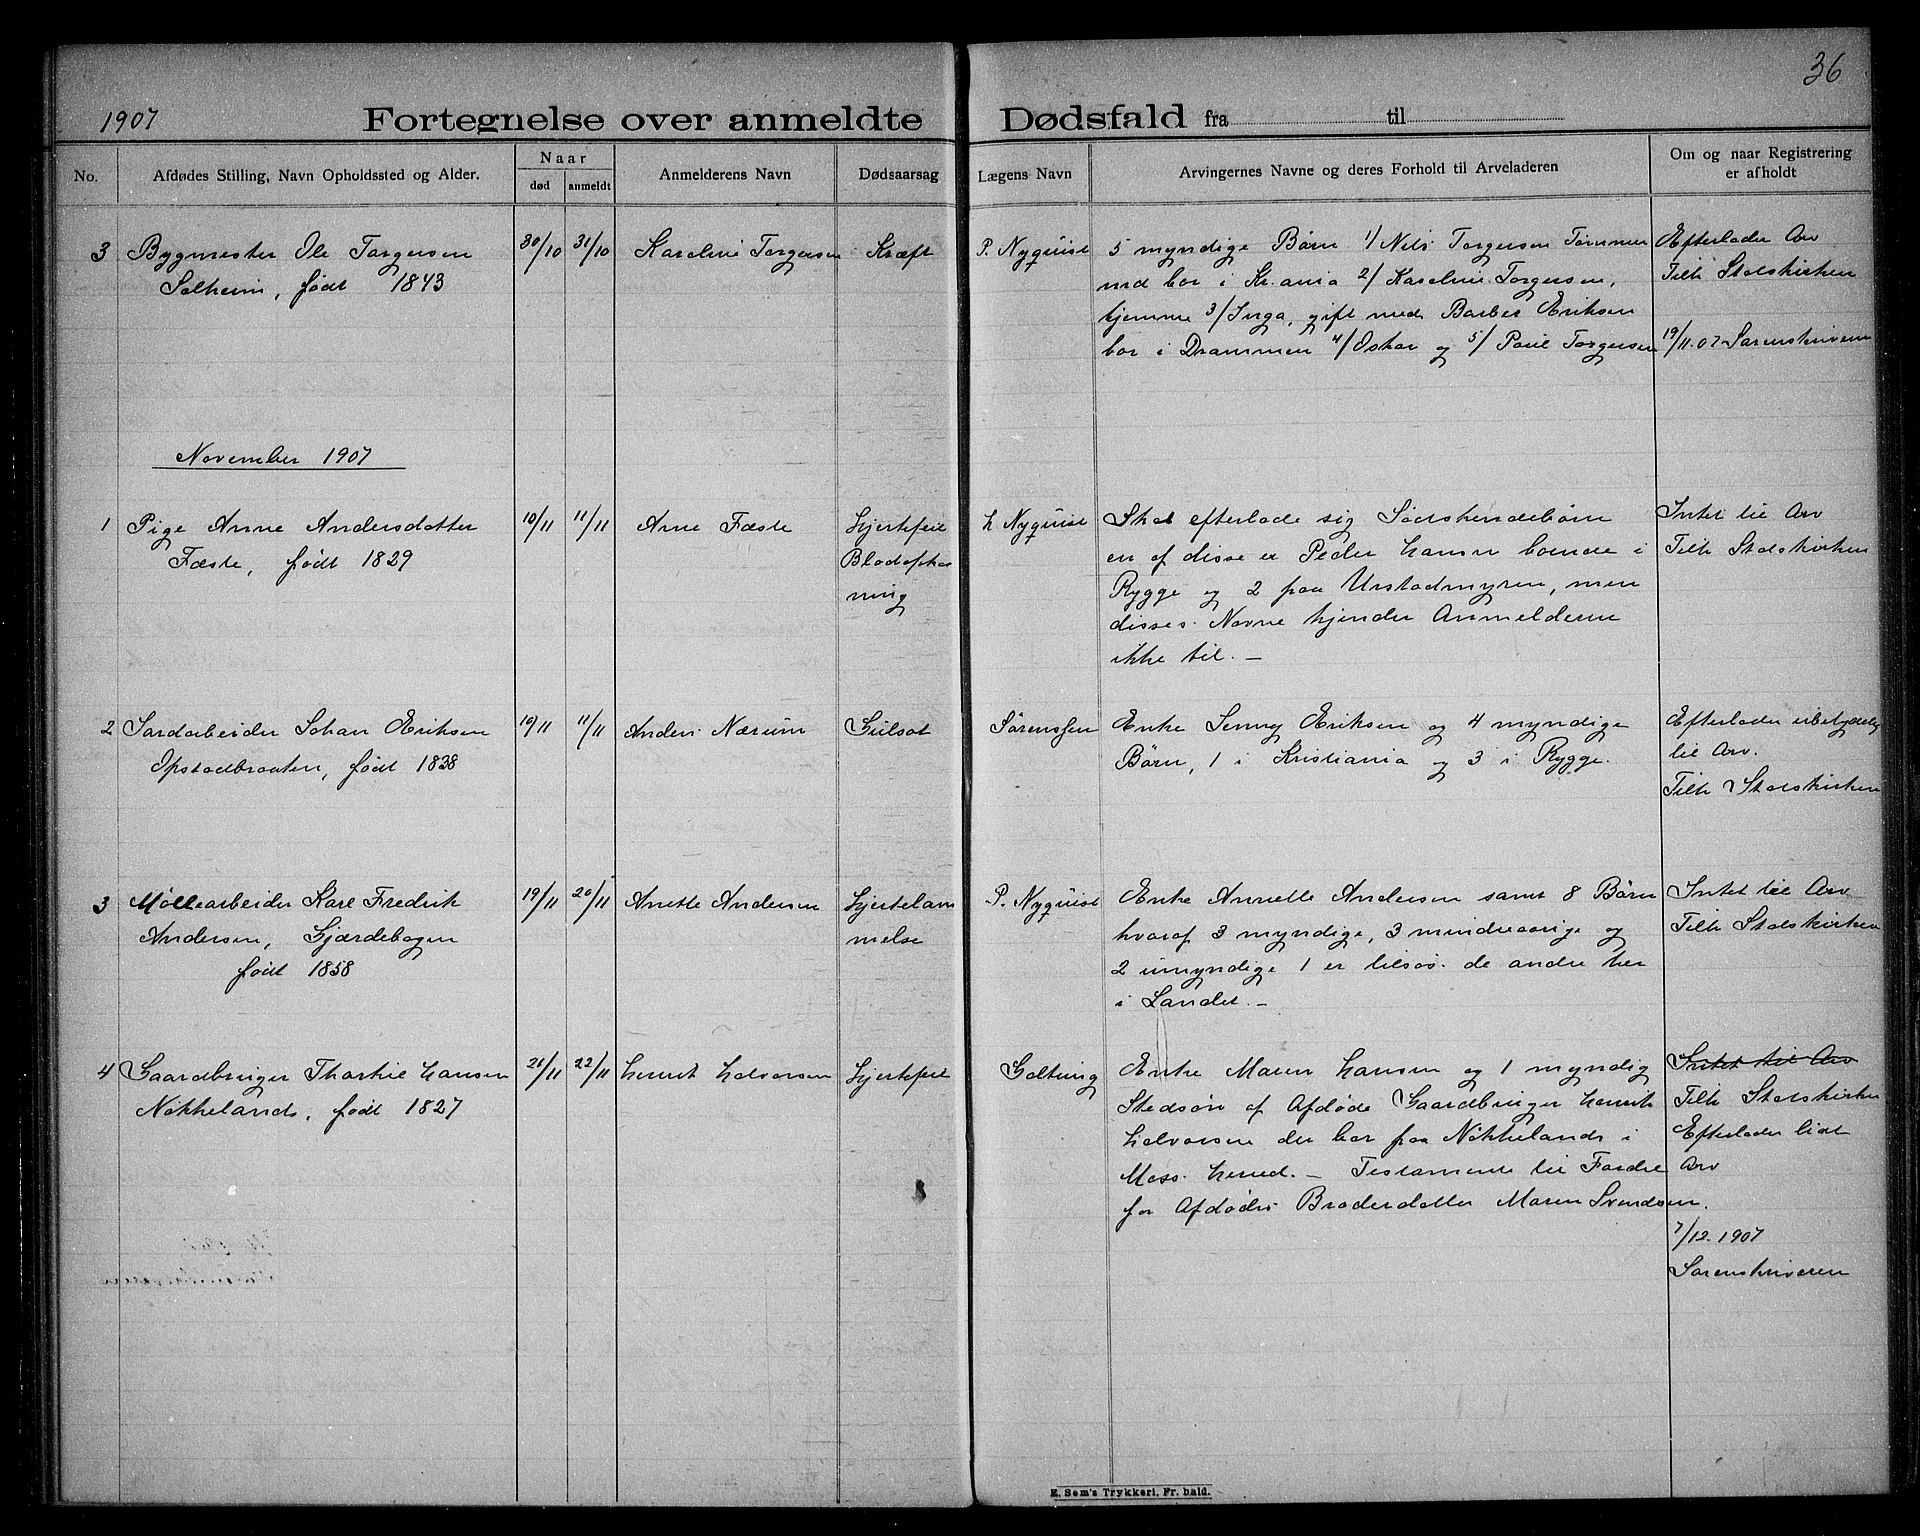 36
1907
Fortegnelse over anmeldte Dødsfald fra til
No.
Afdødes Stilling, Navn Opholdssted og Alder.
Naar
død
anmeldt
Anmelderens Navn
Dødsaarsag
Lægens Navn
Arvingernes Navne og deres Forhold til Arveladeren
Om og naar Registrering
er afholdt
3
Bygmester Ole Torgersen
Solheim, født 1843
30/10
31/10
Karoline Torgersen
Kræft
P. Nyquist
5 myndige Børn 1/ Nils Torgersen Tømmer
md bor i Kr.ania 2/ Karoline Torgersen,
hjemme 3/ Inga, gift med Barber Eriksen
bor i Drammen 4/ Oskar og 5/ Paul Torgersen
Efterlader Arv
Tilh Statskirken
19/11.07 Sorenskriveren
November 1907
1
Pige Anne Andersdatter
Fæste, født 1829
10/11
11/11
Arne Fæste
Hjertefeil
Blodophos
ning
H Nyquist
Skal efterlade sig Sødskendebørn
en af disse er Peder Hansen boende i
Rygge og 2 paa Urstadmyren, men
disses Navne kjender Anmelderen
ikke til. —
Intet til Arv
Tilh Statskirken
2
Jordarbeider Johan Eriksen
Opstadbraaten, født 1838
10/11
11/11
Anders Nærum
Gulsot
Sørenssen
Enke Jenny Eriksen og 4 myndige
Børn, 1 i Kristiania og 3 i Rygge.
Efterlader ubetydelig
til Arv.
Tilh Statskirken
3
Møllearbeider Karl Fredrik
Andersen, Gjærdebogen
født 1858
19/11
20/11
Anette Andersen
Hjertelam
melse
P. Nyquist
Enke Annette Andersen samt 8 Børn
hvoraf 3 myndige, 3 mindreaarige og
2 umyndige 1 er tilsøs. de andre her
i Landet. —
Intet til Arv
Tilh Statskirken
4
Gaardbruger Thorkil Hansen
Nøkkeland, født 1827
21/11
22/11
Henrik Halvorsen
Hjertefeil
Galtung
Enke Maren Hansen og 1 myndig
Stedsøn af Afdøde Gaardbruger Henrik
Halvorsen der bor paa Nøkkeland i
Moss Herred. — Testamente til Fordel
for Afdødes Broderdatter Maren Svendsen.
Intet til Arv
Tilh Statskirken
Efterlader lidt
Arv
7/12.1907
Sorenskriveren
E. Sem's Trykkeri, Fr.hald.